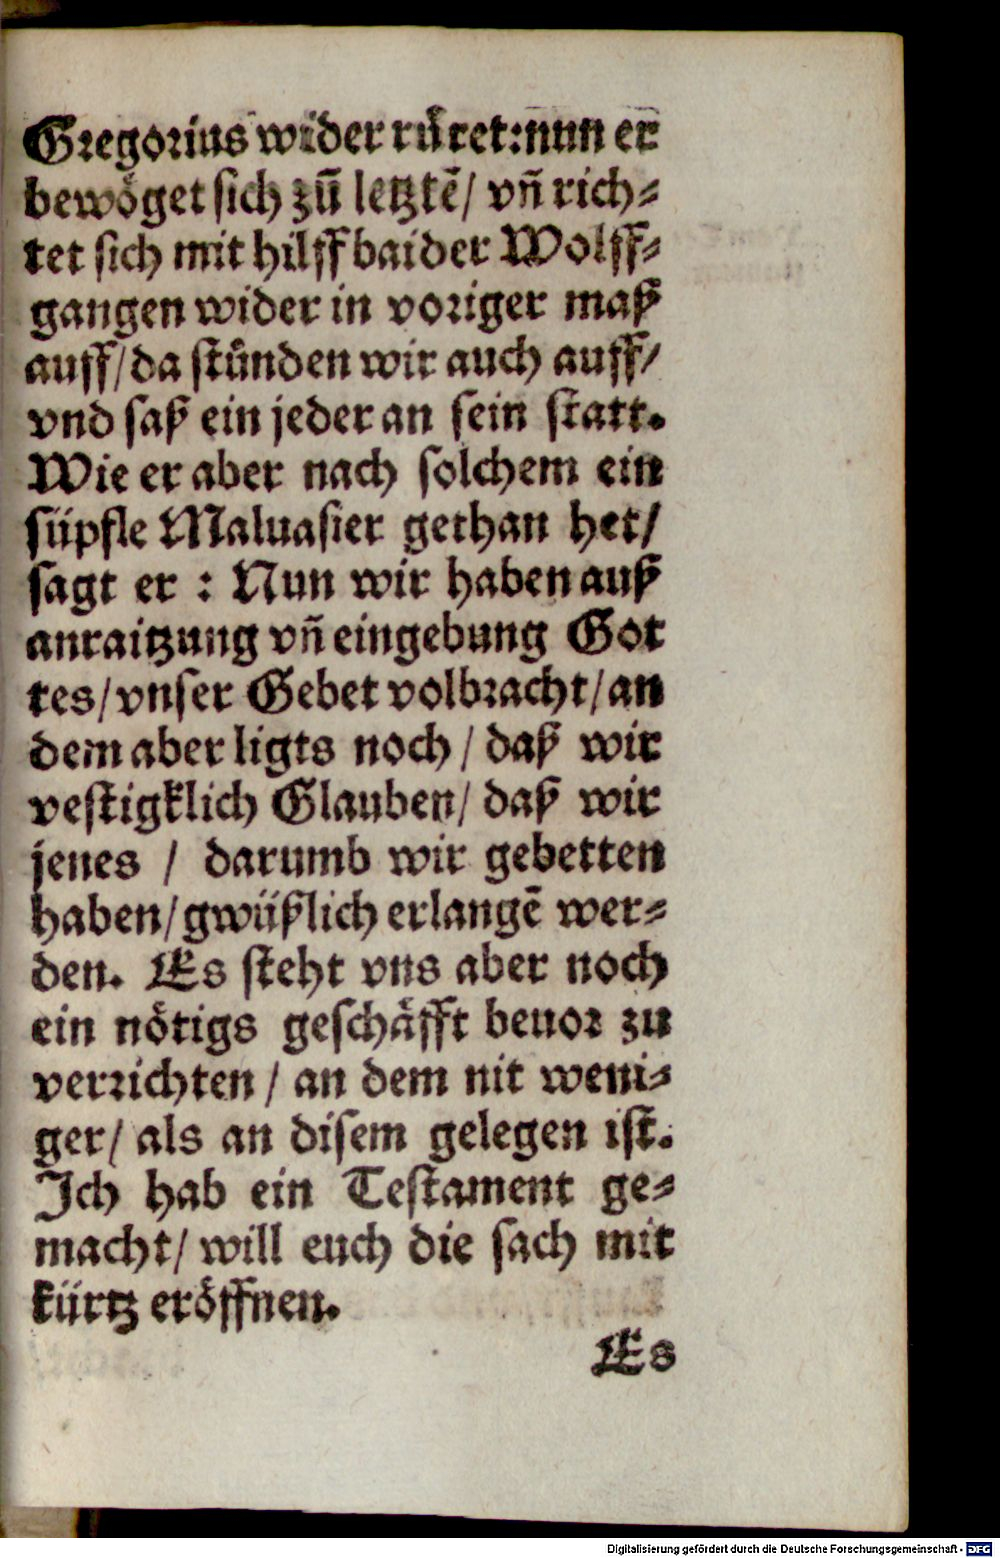 Gregorius wider rüret: nun er
bewöget sich zů letztē/ vñ rich-
tet sich mit hilff baider Wolff-
gangen wider in voriger maß
auff/ da stůnden wir auch auff/
vnd saß ein jeder an sein statt.
Wie er aber nach solchem ein
süpfle Maluasier gethan het/
sagt er : Nun wir haben auß
anraitzung vñ eingebung Got
tes/ vnser Gebet volbracht/ an
dem aber ligts noch / daß wir
vestigklich Glauben/ daß wir
jenes / darumb wir gebetten
haben/ gwüßlich erlangē wer-
den. Es steht vns aber noch
ein nötigs geschäfft beuor zu
verrichten / an dem nit weni-
ger/ als an disem gelegen ist.
Ich hab ein Testament ge-
macht/ will euch die sach mit
kürtz eröffnen.
Es
Digitalisierung gefördert durch die Deutsche Forschungsgemeinschaft - DFG